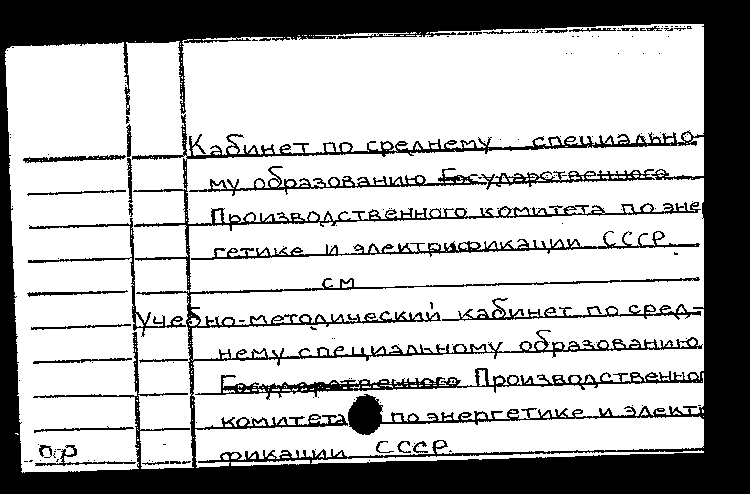 Кабинет по среднему специально-
му образованию Государственного
Производственного комитета по энер
гетике и электрификации СССР.
см
Учебно-методический кабинет по сред-
нему специальному образованию
Государственного Производственног
комитета по энергетике и электр
фикации СССР
ор